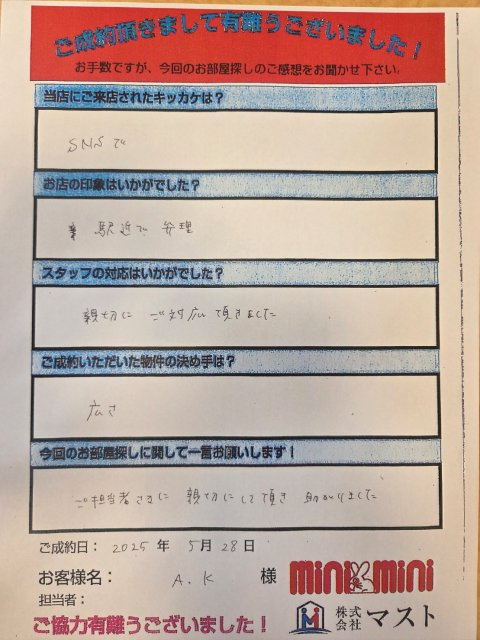 ご成約頂きまして有難うございました！
お手数ですが、今回のお部屋探しのご感想をお聞かせ下さい。
当店にご来店されたキッカケは？
SNSで
お店の印象はいかがでした？
駅近で弁理
スタッフの対応はいかがでした？
親切にご対応頂きました
ご成約いただいた物件の決め手は？
広さ
今回のお部屋探しに関して一言お願いします！
ご担当者さまに親切にして頂き助かりました
ご成約日：2025年5月28日
お客様名：A.K様
担当者：
minimini
株式会社マスト
ご協力有難うございました！